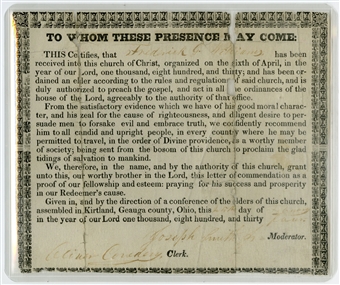 TO WHOM THESE PRESENCE MAY COME:
THIS Certifies, that has been
received into this church of Christ, organized on the sixth of April, in the
year of our Lord, one thousand, eight hundred, and thirty; and has been or-
dained an elder according to the rules and regulations of said church, and is
duly authorized to preach the gospel, and act in all the ordinances of the
house of the Lord, agreeably to the authority of that office.
From the satisfactory evidence which we have of his good moral charac-
ter, and his zeal for the cause of righteousness, and diligent desire to per-
suade men to forsake evil and embrace truth, we confidently recommend
him to all candid and upright people, in every county where he may be
permitted to travel, in the order of Divine providence, as a worthy member
of society; being sent from the bosom of this church to proclaim the glad
tidings of salvation to mankind.
We, therefore, in the name, and by the authority of this church, grant
unto this, our worthy brother in the Lord, this letter of commendation as a
proof of our fellowship and esteem: praying for his success and prosperity
in our Redeemer's cause.
Given in, and by the direction of a conference of the elders of this church,
assembled in Kirtland, Geauga county, Ohio, this day of
in the year of our Lord one thousand, eight hundred, and thirty
Joseph Smith Moderator.
Oliver Cowdery Clerk.